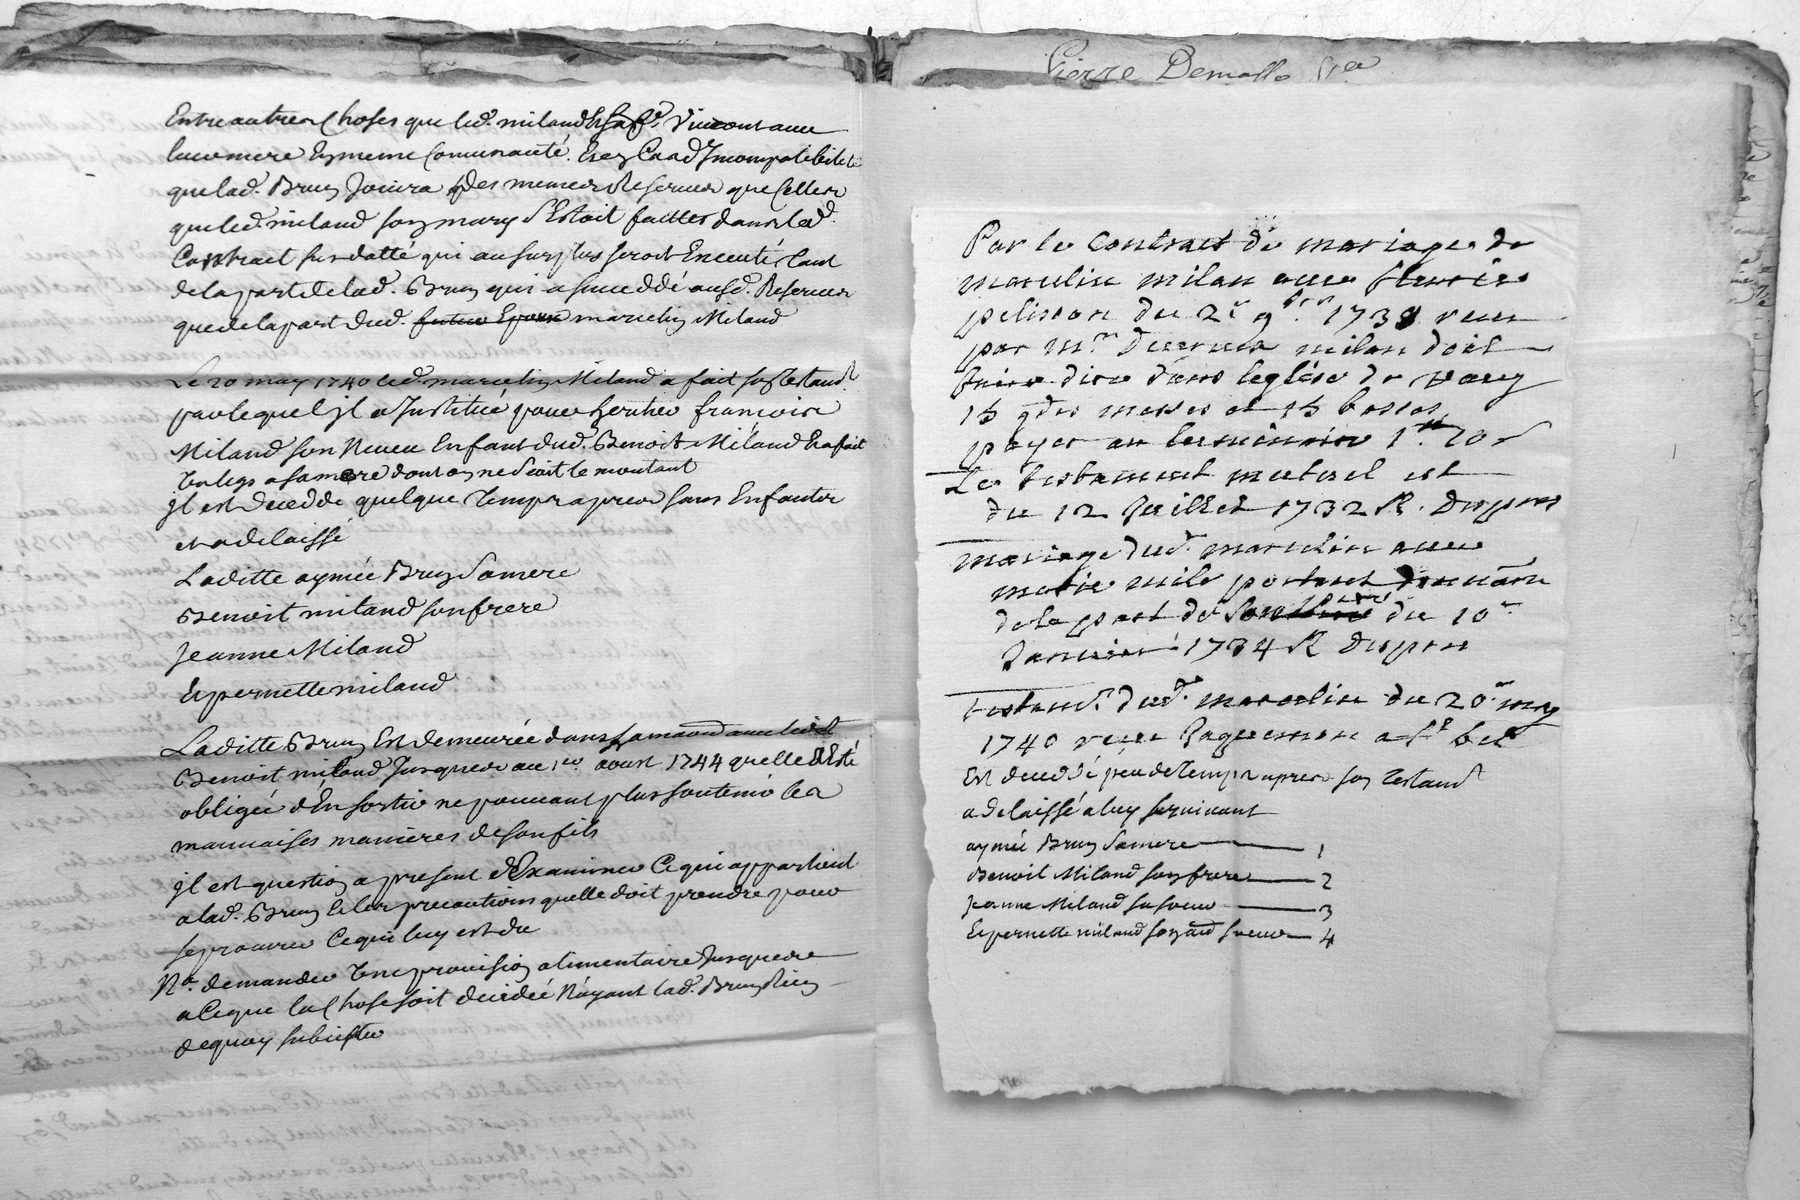 Entre autres Choses que led. miland & sa fe. Vivront avec
leur mere En meme Comunauté. Et en Cas d'Jncompatibilité
que lad. Brun Jouira des memes Reserves que Celles
que led. miland son mary S'Estoit faittes dans led.
Contract sus datté qui au surplus seroit Executé tant
de la part de lad. Brun qui a succeddé ausd. Reserves
que de la part dud. futur Epoux marcelin Miland
Le 20 may 1740 led. marcelin Miland a fait son testamt.
par lequel jl a Jnstitué pour heritier francois
Miland son Neveu Enfant dud. Benoit Miland Et a fait
un legs a sa mere dont on ne sçait le montant
jl est decedde quelque temps apres sans Enfants
et a delaissé
Laditte aymée Brun sa mere
Benoit miland son frere
Jeanne Miland
Et pernette miland
Laditte Brun Est demeurée dans sa maison avec ledit
Benoit miland Jusques au 1er. aoust 1744 quelle a Esté
obligée d'En sortir ne pouvant plus soutenir les
mauvaises manieres de son fils
jl est question a present d'Examiner Ce qui appartient
a lad. Brun Et les precautions quelle doit prendre pour
se procurer Ce qui luy est du
Na. demander une provision alimentaire Jusques
a Ce que la Chose soit decidée N'ayant lad. Brun Rien
de quoy subsister
Pierre Demasso
Par le Contract de mariage de
marcelin milan avec fleurie
pelisson du 2e 9bre 1738 receu
par mre milan doit
faire dire dans leglise de
15 gdes messes et 15 basses
payer au luminaire 1tt 10 s
Le testament mutuel est
du 12 Juillet 1732 R. Dupon
mariage dud. marcelin avec
marie mile portant donnaon
de la part de du 10e
Janvier 1734 R Dupon
testamt. dud. marcelin du 20e may
1740 receu Jaquemon a
Est deceddé peu de temps apres son testamt
a delaissé a luy survivant
aymée Brun sa mere 1
Benoit Miland son frere 2
Jeanne Miland sa soeur 3
Et pernette miland son aud soeur 4